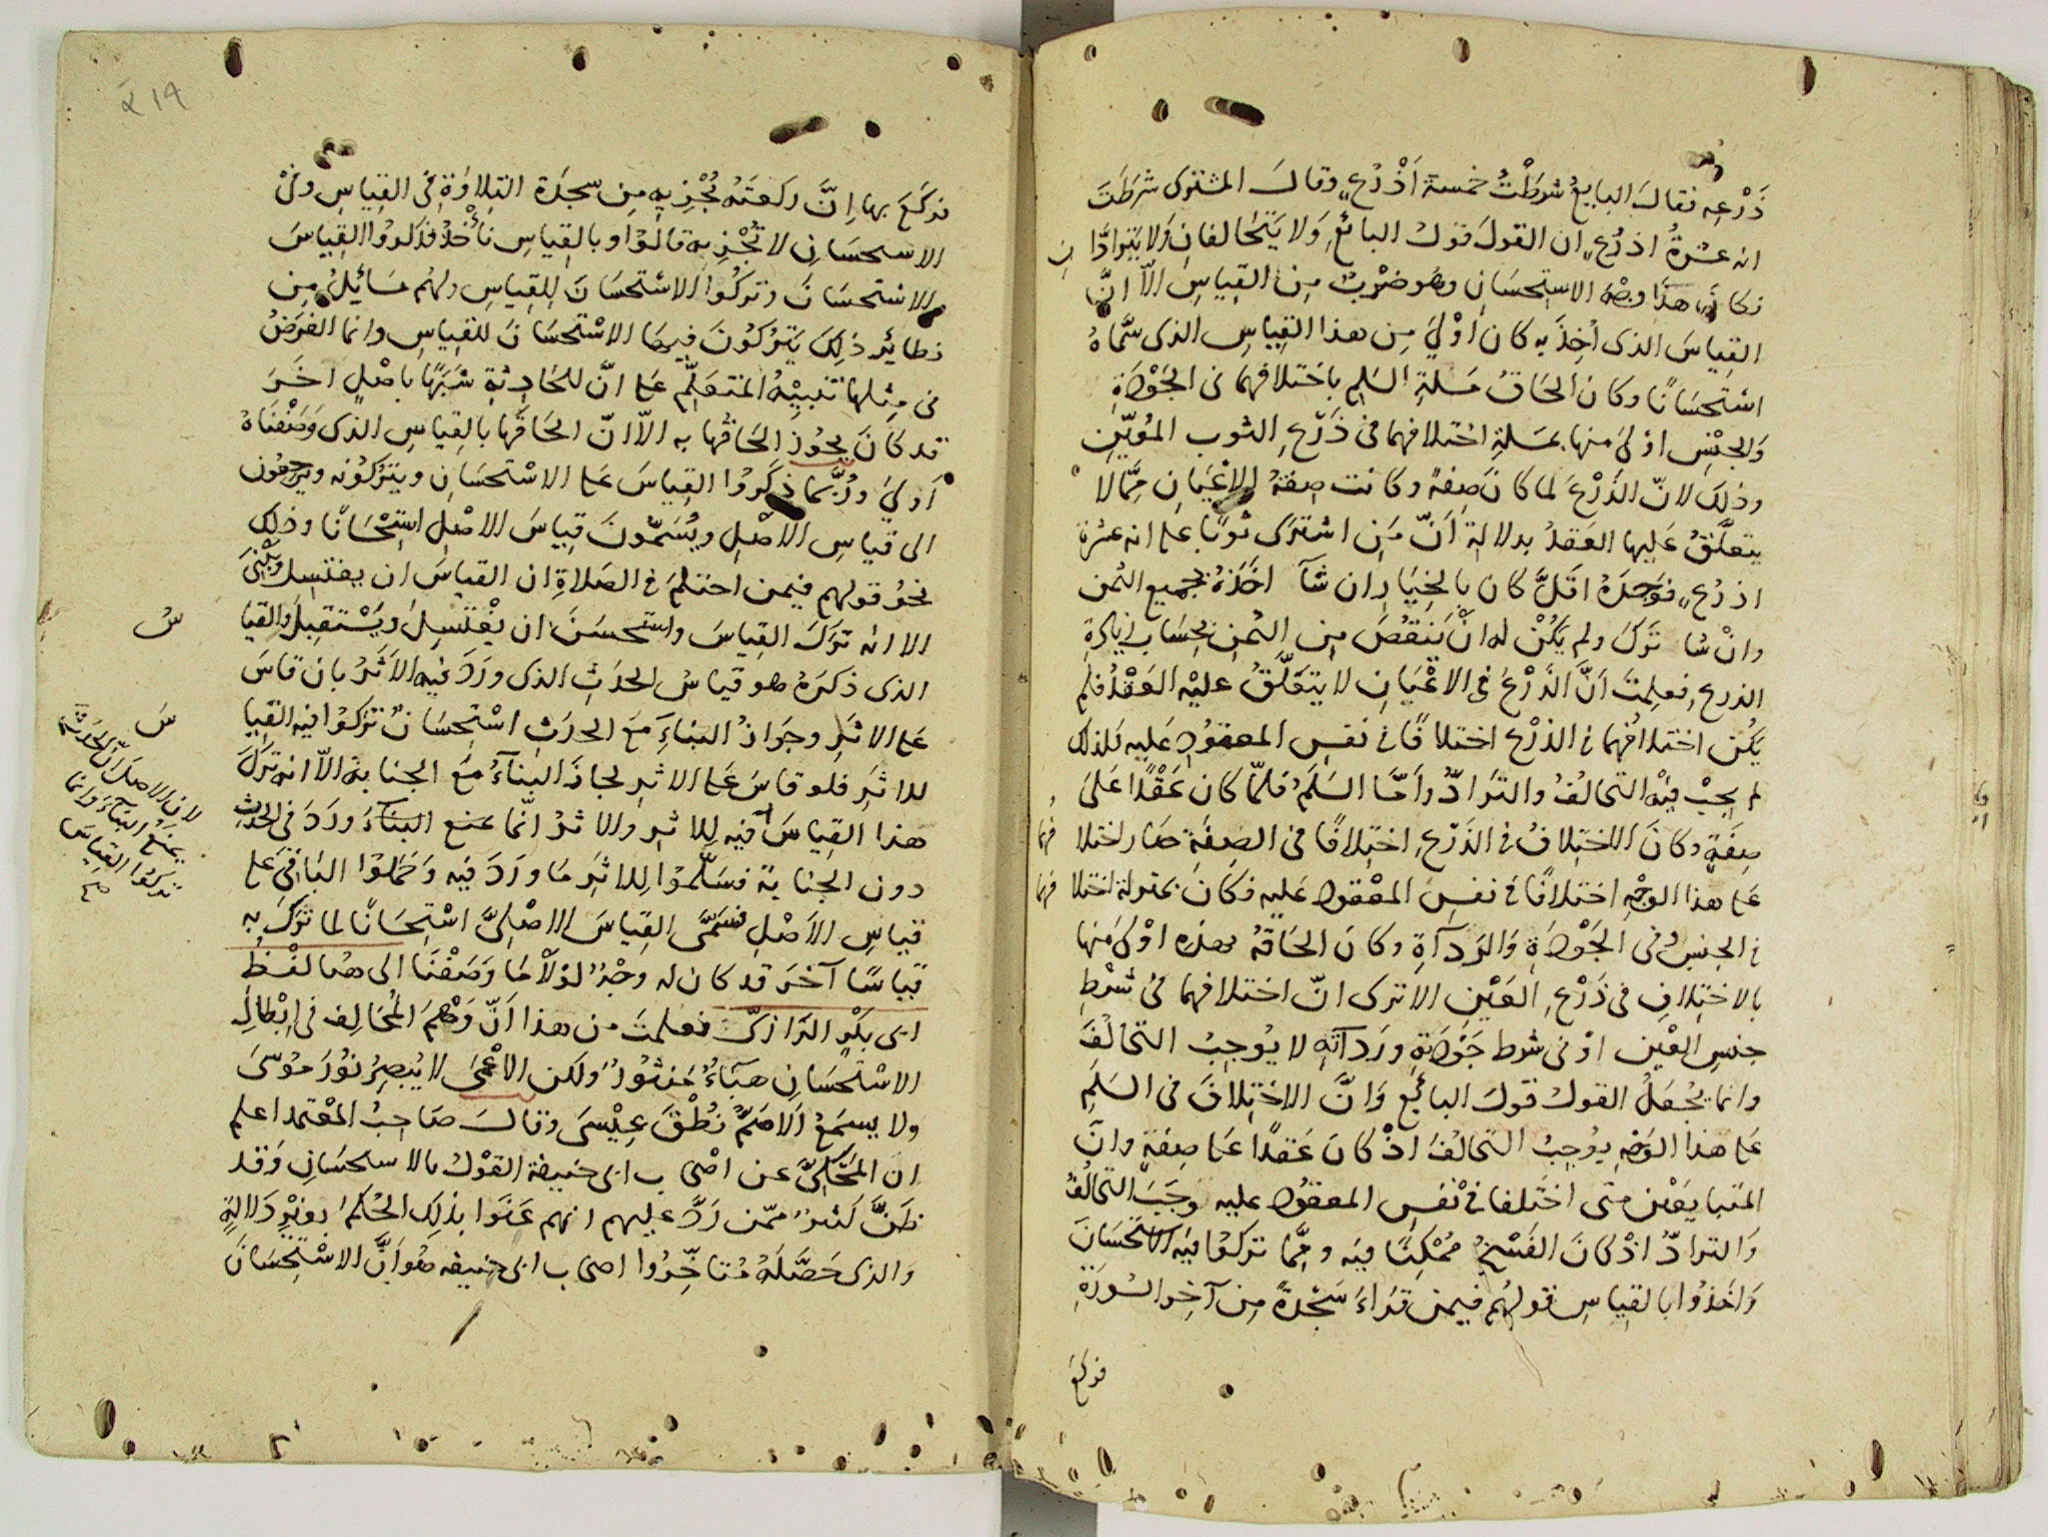 ذَرْعِه فقالَ البايعُ شرطْتُ خمسة اَذْرُعٍ وقالَ المشترى شَرطَتَ
انه عشرةُ اذرُعٍ ان القولَ قولُ البائعِ وَلا يَتَحالفانِ وَلا يَتَرادَّانِ
فكانَ هذَا وجهَ الاستِحسَانِ وهُو ضرْبٌ مِن القِياسِ الاّ انَّ
القِياسَ الذى اُخِذَ بِه كان اَوْلىَ مِن هذا القِياسِ الذى سَمَّاهُ
استحسَانًا وكان الحَاقُ مَسلةِ السَلمِ باختلافهما فى الجَوْدَةِ
وَالجنْسِ اوْلىَ منها بمَسلةِ اختلافهما فى ذَرْعِ الثوب المُعيّنِ
وذلِكَ لانّ الذَرْعَ لما كانَ صِفةً وكانت صِفةُ الاعْيَانِ مِمَّا لا
يتعلّقُ عَليها العَقدُ بدلالةِ اَنّ مَن اشترَى ثوبًا على انه عشرة
اذرُعٍ فوَجدَهُ اقَلَّ كان بالخيَارِ ان شآ اخَذهُ بجميع الثمن
وانْ شا تَرَكَ ولم يَكُنْ له انْ يَنقُصَ مِن الثمنِ بحِسَابِ
الذرعِ فعلِمتَ اَنَّ الذَرْعَ فى الاعْيَانِ لا يتعَلَّقُ عليْه العَقْدُ فلم
يَكُن اختلافُهما فى الذرْع اختلافًا فى نفسِ المعقُودِ عَليه فلذلك
لم يجِبْ فيْه التحالفُ والترَادُّ وامّا السَلَمُ فلمّا كان عَقْدًا عَلىَ
صِفَةٍ وكانَ الاختِلافُ فى الذَرْعِ اختِلافًا فى الصِفَةِ صَار اختلافهما
على هذا الوجْهِ اختلافًا فى نفسِ المعْقودِ عَليه فكانَ بمَنزلةِ اختلافهما
فى الجنسِ وفى الجَوْدَةِ وَالرَدآةِ وكانَ الحَاقهُ بهذه اوْلىَ منها
بالاختِلافِ فى ذَرْعِ العَيْنِ الا ترى انّ اختلافهما فى شَرْطِ
جنسِ العَين اوْ فى شرط جَوْدَتِهِ ورَدآتِهِ لا يُوجِبُ التحالفَ
وانما يجُعَلُ القولُ قولَ البائع وَانَّ الاختِلافَ فى السَلَمِ
على هذا الوَجْهِ يوُجبُ التحالفُ اذْ كانَ عَقدًا على صِفةٍ وانّ
المتبايعَيْن متى اختلفا فى نَفسِ المعقُودِ عليه وجَبَ التحالفُ
وَالترادُّ اذْ كانَ الفَسْخُ مُمْكِنًا فيه ومِمَّا تركُوا فيه الاستحسَانَ
وَاَخذُوا بالقِياسِ قولهُم فيمن قرَاءَ سَجْدةً مِن آخِر السُورَةِ
فركَعَ
٢١٩
فركَعَ بها اِنَّ ركعَتَهُ تُجْزِيهِ مِن سجدَة التِلاوةِ فى القِياسِ وفى
الاستحسَانِ لا تُجْزِيهِ قالوْا وبالقِياسِ نأْخُذُ فذكروُا القِياسَ
والاستحسَانَ وتركُوا الاسْتحسَانَ للقِياسِ ولهُم مَسَائِلُ مِن
نظائِر ذلِكَ يَترُكُونَ فيها الاسْتحسَانَ للقِياسِ وانما الغَرَضُ
فى مِثلها تنبِيْهُ المتعَلِّم على انّ للحَادِثةِ شَبَهًا باصْلٍ اخَرَ
قد كانَ يجُوز الحَاقُها به الاّ انّ الحَاقَها بالقِياسِ الذى وَصَفْنَاهُ
اَولىَ ورُبَّما ذكَرُوا القِياسَ على الاستحسَانِ ويَترُكُونه ويَرجعُون
الى قياسِ الاصْلِ ويُسَمُّونَ قِياسَ الاصْلِ استِحْسَانًا وذلِك
نحوُ قولهم فيمن احتلمَ فى الصَلاةِ ان القياسَ ان يغتسِل وَيَبْنِىَ
الا انه تَرَكَ القِياسَ واستحسَنَ ان يغْتَسِلَ ويَسْتقبِلَ والقيا
سُ
الذى ذكرَهُ هو قياسُ الحَدَثِ الذى ورَدَ فيه الاَثَرُ بان قاسَ
على الاثرِ وجوَازُ البناءِ مَعَ الحدَثِ اسْتِحسَانٌ تركوُا فيه القيا
سَ
للاثرِ فلو قاسَ عَلى الاثرِ لجازَ البنآءُ مَعَ الجنابة الاّ انه ترَكَ
هذا القِياسَ فيْه للاثرِ والاثرُ انّما منع البنآءَ ورَدَ فى الحدث
دون الجنابة فسَلّمُوا للاثرَ مَا ورَدَ فيه وَحَمَلوُا الباقىَ على
قياسِ الاَصْلِ فسَمَّى القِياسَ الاصْلىَّ اسْتِحسَانًا لما تركَ به
قياسًا آخرَ قد كان له وجْهٌ لوْلاَ مَا وَصَفْنَا الى هٰهنا لفْظُ
ابى بَكْرٍ الرَّازىّ فعلمتَ من هذا اَنّ وَهْمَ المُخَالِف فى اِبْطالِ
الاسْتِحسَانِ هَبَاءٌ مَنثوُرٌ ولكن الاَعْمَى لا يُبصِرُ نوُرَ مُوْسَى
ولا يسمَعُ الاصَمُّ نُطْقَ عِيْسَى وقالَ صَاحِبُ المعْتمد اعلم
ان المَحْكىَّ عن اصْحاب ابى حنيفة القوْلُ بالاستحسَانِ وَقد
ظَنَّ كَثيرٌ ممّن رَدَّ عليهم انهم عَنَوا بذلِكَ الحُكمَ بغيْرِ دَلالةٍ
وَالذى حَصَّلَهُ متاخِّروُا اصحاب ابى حنيفه هُو اَنَّ الاسْتِحْسَانَ
لان الاصل ان الحَدَث
يمنَعُ البنآءَ وانما
تركوُا القياسَ
صح